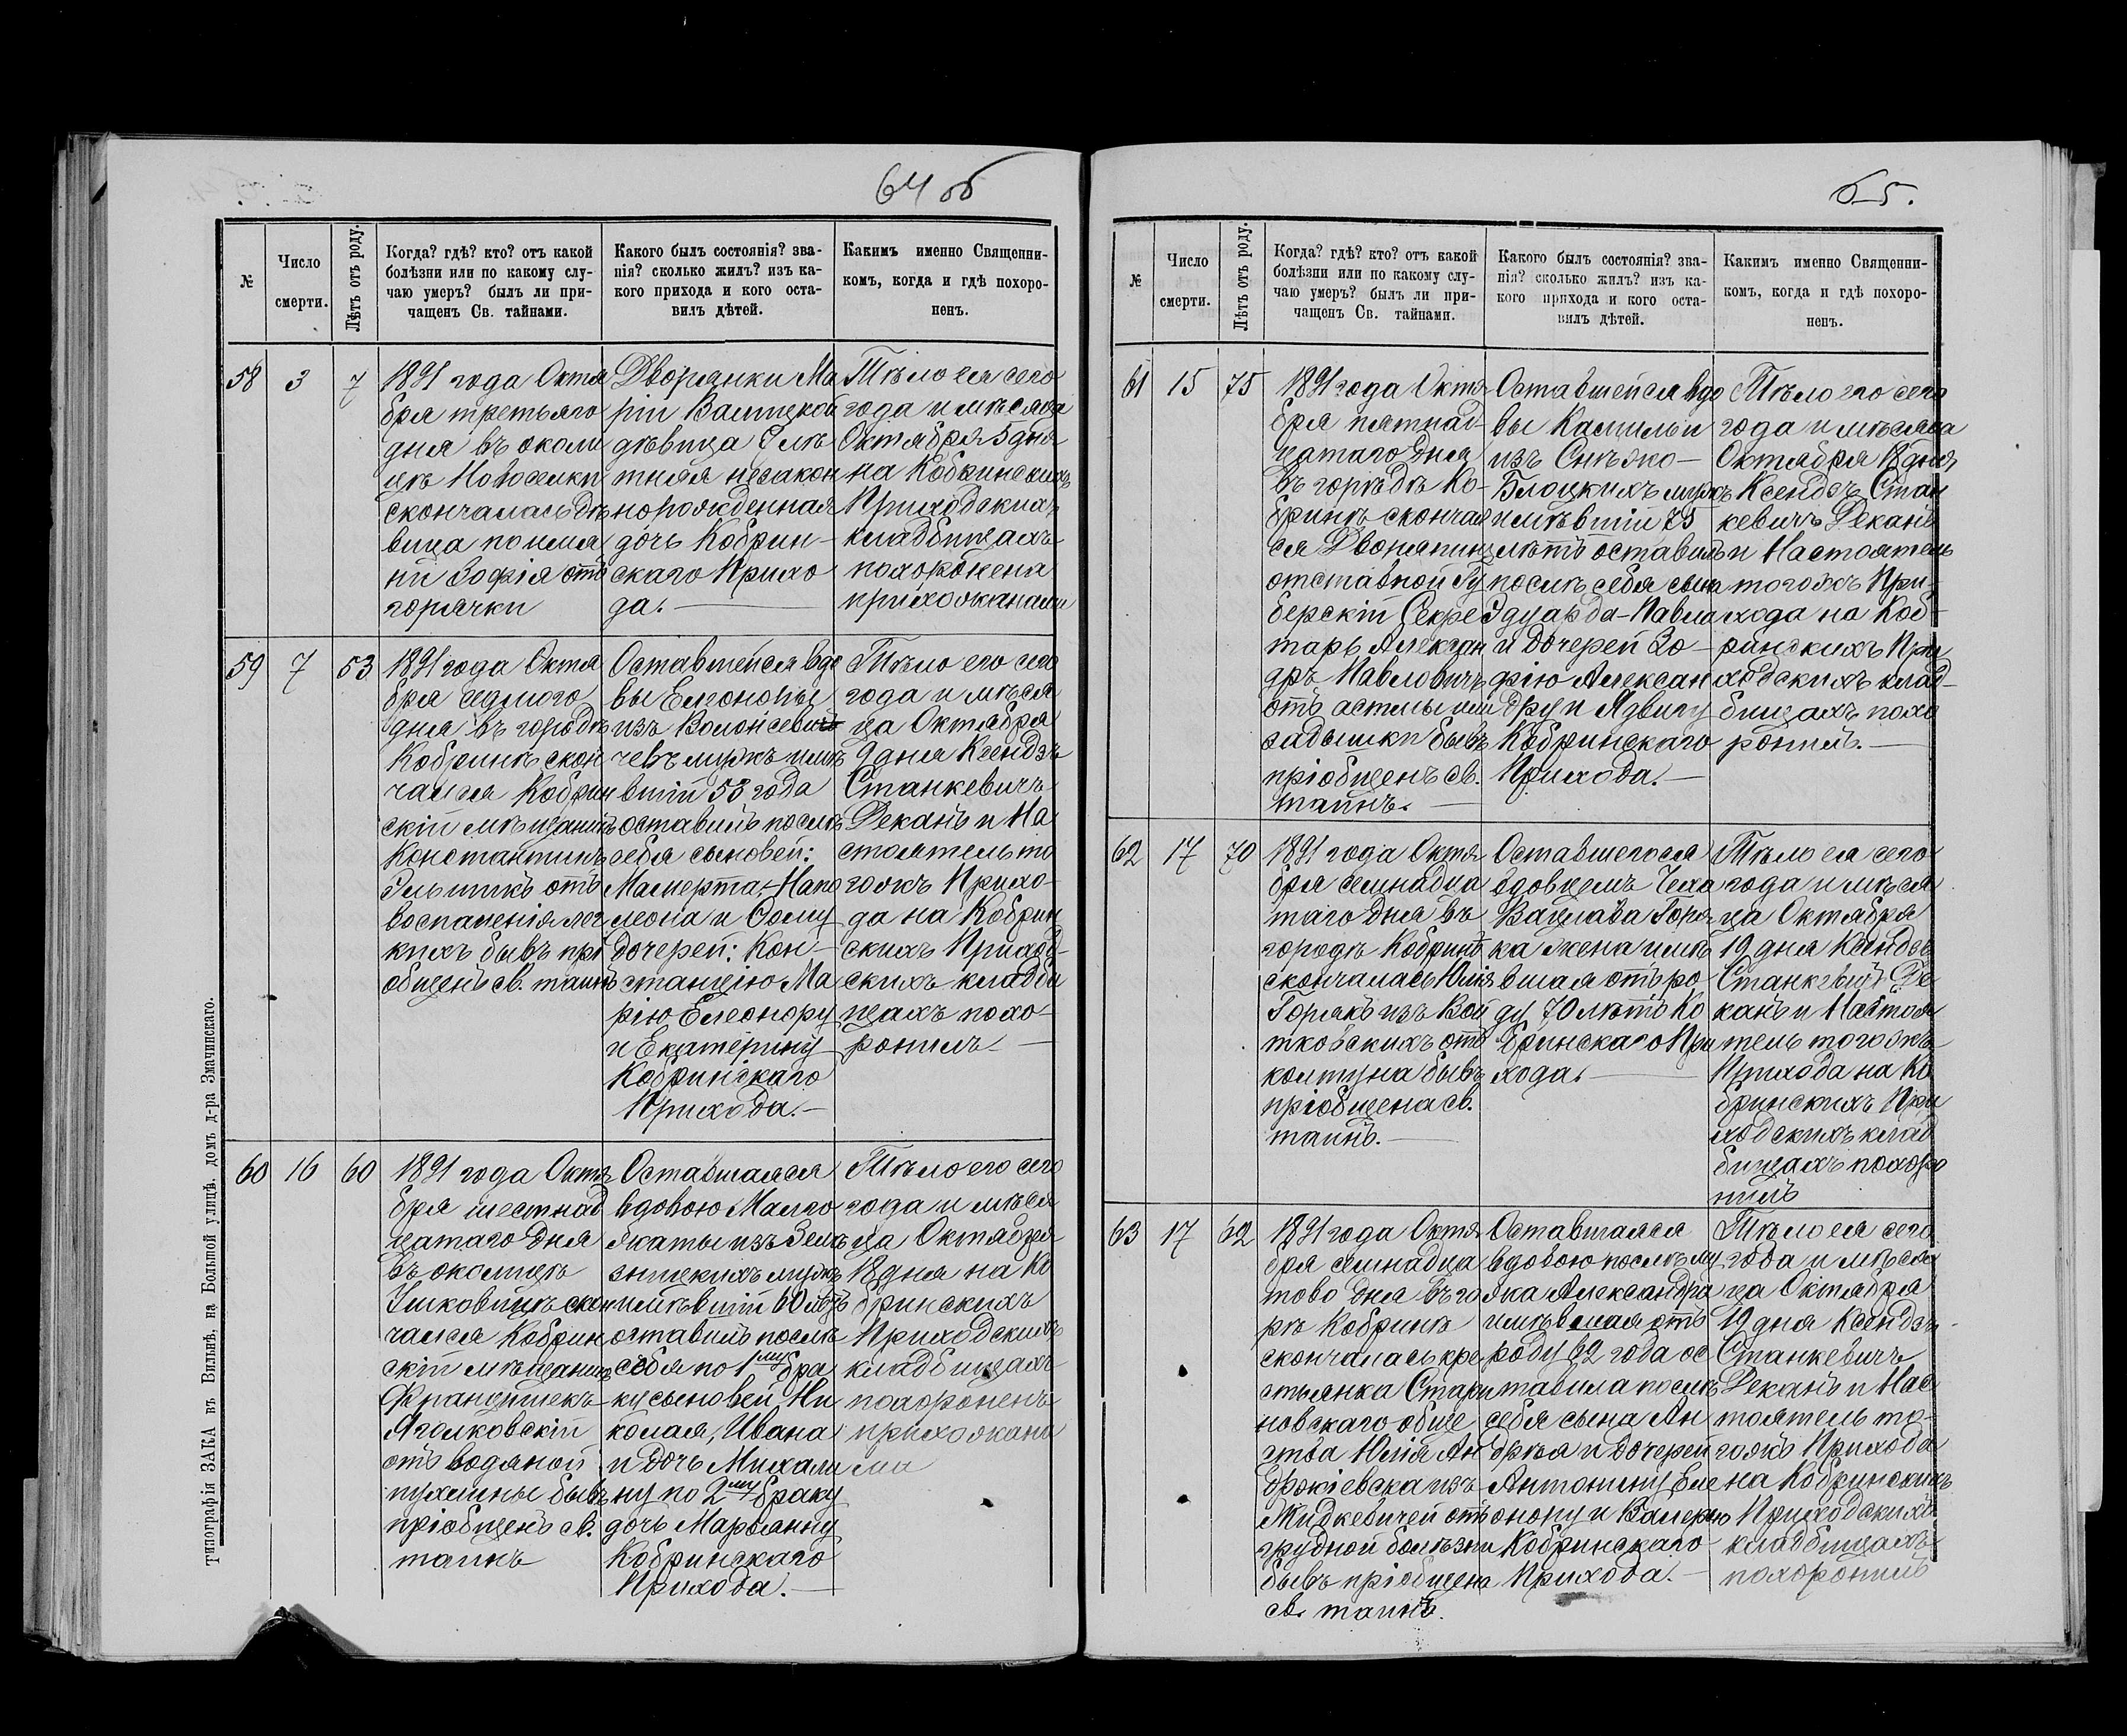 64 об
№
Число
смерти.
Лѣтъ отъ роду.
Когда? гдѣ? кто? отъ какой
болѣзни или по какому слу-
чаю умеръ? былъ ли при-
чащенъ Св. тайнами.
Какого былъ состоянія? зва-
нія? сколько жилъ? изъ ка-
кого прихода и кого оста-
вилъ дѣтей.
Каким именно Священни-
комъ, когда и гдѣ похоро-
ненъ.
58
3
7
1891 года Октя
бря третьяго
дня въ околи
цѣ Новоселки
скончалась дѣ
вица по име
ни Зофія отъ
горячки
Дворянки Ма
ріи
дѣвица 7 лѣ
тняя незакон
норожденная
дочь Кобрин-
скаго Прихо
да.
Тѣло ея сего
года и мѣсяца
Октября 5 дня
на Кобринскихъ
Приходскихъ
кладбищахъ
похоронена
прихожанами
59
7
53
1891 года Октя
бря седмого
дня въ городѣ
Кобринѣ скон
чался Кобрин
скій мѣщанинъ
Константинъ
отъ
воспаленія лег
кихъ бывъ прі
общенъ св. таинъ
Оставшейся вдо
вы Елеоноры
изъ
чевъ мужъ имѣ
вшій 53 года
оставилъ послѣ
себя сыновей:
Мамерта-Напо
леона и Фому
дочерей: Кон-
станцію Ма
рію Елеонору
и Екатерину
Кобринскаго
Прихода.-
Тѣло его сего
года и мѣся
ца Октября
9 дня Ксендзъ
Станкевичъ
Деканъ и На
стоятель то
гожъ Прихо-
да на Кобрин
скихъ Приход-
скихъ кладби
щахъ похо-
ронилъ
60
16
60
1891 года Октя
бря шестнад
цатаго дня
въ околицѣ
скон
чался Кобрин
скій мѣщанинъ
Францишекъ
Яголковскій
отъ водяной
пухлины бывъ
пріобщенъ св.
таинъ
Оставшаяся
вдовою Малго
жаты изъ
мужъ
имѣвшій 60 лѣтъ
оставилъ послѣ
себя по 1му бра
ку сыновей Ни
колая, Ивана
и дочь Михали
ну по 2му браку
дочь Марьянну
Кобринскаго
Прихода.-
Тѣло его сего
года и мѣся
ца Октября
18 дня на Ко
бринскихъ
Приходскихъ
кладбищахъ
похороненъ
прихожана
ми
типографія ЗАКА въ Вильнѣ, на Большой улицѣ. домъ д-ра Змачинскаго.
65.
№
Число
смерти.
Лѣтъ отъ роду.
Когда? гдѣ? кто? отъ какой
болѣзни или по какому слу-
чаю умеръ? былъ ли при-
чащенъ Св. тайнами.
Какого былъ состоянія? зва-
нія? сколько жилъ? изъ ка-
кого прихода и кого оста-
вилъ дѣтей.
Какимъ именно Священни-
комъ, когда и гдѣ похоро-
ненъ.
61
15
75
1891 года Октя
бря пятнад-
цатаго дня
въ горѣдѣ Ко-
бринѣ скончал
ся Дворянинъ
отставной Гу
берскій Секре
тарь Алексан
дръ Павловичъ
отъ астмы или
задышки бывъ
пріобщенъ св.
таинъ.
Оставшейся вдо
вы Камильи
изъ Снѣжко-
Блоцкихъ мужъ
имѣвшій 75
лѣтъ оставилъ
послѣ себя сына
Эдуарда-Павла
и дочерей Зо-
фію Алексан
дру и Ядвигу
Кобринскаго
Прихода.-
Тѣло его сего
года и мѣсяца
Октября 18 дня
Ксендзъ Стан
кевичъ Деканъ
и Настоятель
тогожъ При-
хода на Коб-
ринскихъ При
ходскихъ клад-
бищахъ похо
ронилъ.-
62
17
70
1891 года Октя
бря семнадца
таго дня въ
городѣ Кобринѣ
скончалась Юлія
Горякъ изъ Вой
тковскихъ отъ
колтуна бывъ
пріобщена св.
таинъ.-
Оставшегося
вдовцемъ Чеха
Вацлава Горя
ка жена имѣ
вшая отъ ро
ду 70 лѣтъ Ко
бринскаго При
хода.
Тѣло ея сего
года и мѣся
ца Октября
19 дня Ксендзъ
Станкевичъ Де
канъ и Настоя
тель тогожъ
Прихода на Ко
бринскихъ При
ходскихъ клад
бищахъ похоро
нилъ
63
17
62
1891 года Октя
бря семнадца
тово дня въ го
рѣ Кобринѣ
скончалась кре
стьянка
новскаго обще
ства Юлія Ан
држіевска изъ
Жидкевичей отъ
грудной болѣзни
бывъ пріобщена
св. таинъ.
Оставшаяся
вдовою послѣ му
жа Александра
имѣвшая отъ
роду 62 года ос
тавила послѣ
себя сына Ан
држея и дочерей
Антонину Еле
онору и Валерію
Кобринскаго
Прихода.-
Тѣло ея сего
года и мѣся
ца Октября
19 дня Ксендзъ
Станкевичъ
Деканъ и Нас
тоятель то-
гожъ Прихода
на Кобринскихъ
Приходскихъ
кладбищахъ
похоронилъ